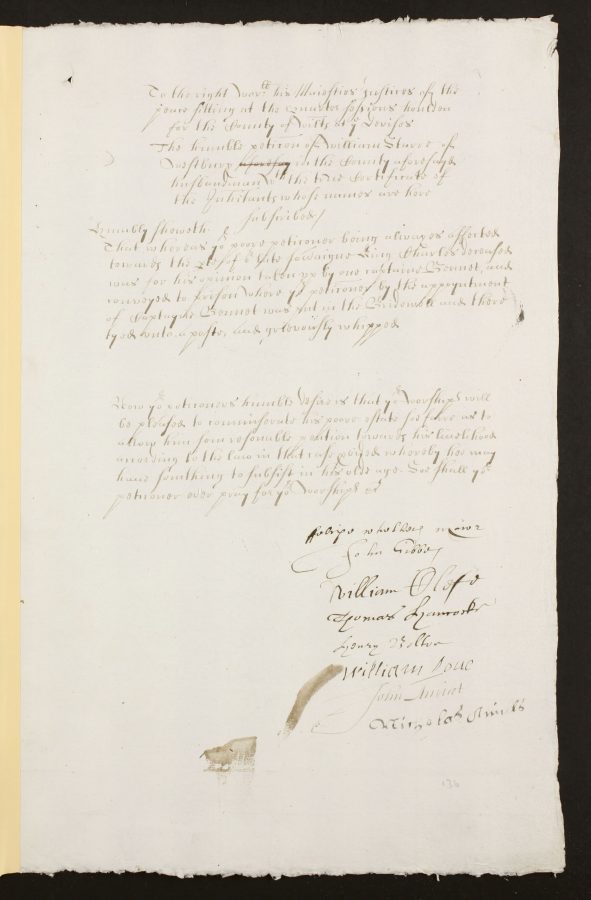 To the right wor:ll his Maiesties Justices of the
peace sitting at the Quarter sessions houlden
for the County of Wilts at ye Devizes
The humble peticon of William Sturge of
Westbury in the County aforesayd
husbandman wth the true Certificate of
the Inhabitants whose names are here
subscribed
Humbly sheweth
That whereas yr poore peticioner being alwayes affected
towards the of late Soveraigne King Charles deceased
was for his opinion taken upp by one Captaine Bennet, and
conveyed to prison where yr peticioner by the appoyntment
of Captayne Bennet was put in the Bridewell and there
tyed unto a poste, and greivously whipped
Now yr peticioners humble desire is that yr Worshipps will
be pleased to commiserate his poore estate soe farre as to
allow him som resonable pention towards his livelihood
according to the law in that case whereby hee may
have somthing to subsist in his olde age. Soe shall yr
peticioner ever pray for yr Worshipps &c
John Gibbes
William
Thomas Hancocke
Henry
William Love
John
Nicholas
136